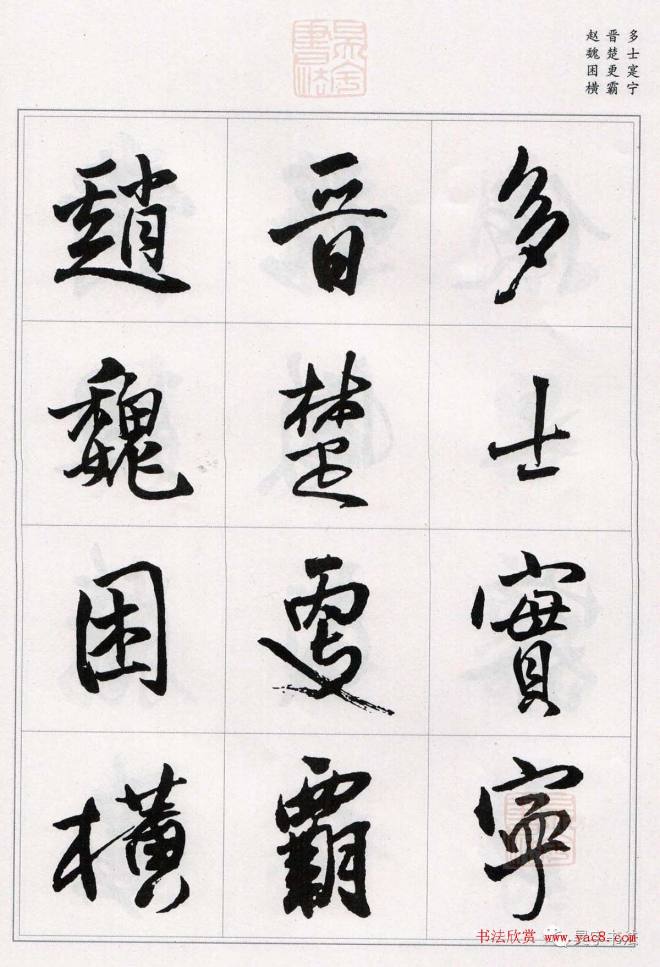 多士寔宁
晋楚更霸
赵魏困横
多士實寧
晋楚更霸
趙魏困橫
书法欣赏 www.yac8.com